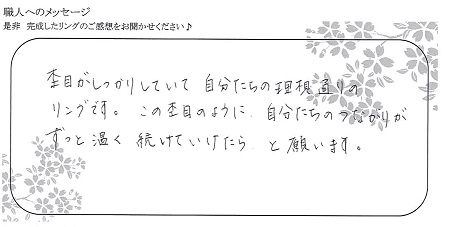 職人へのメッセージ
是非 完成したリングのご感想をお聞かせください♪
杢目がしっかりしていて 自分たちの理想通りの
リングです。この杢目のように、自分たちのつながりが
ずっと温く 続けていけたら、と願います。